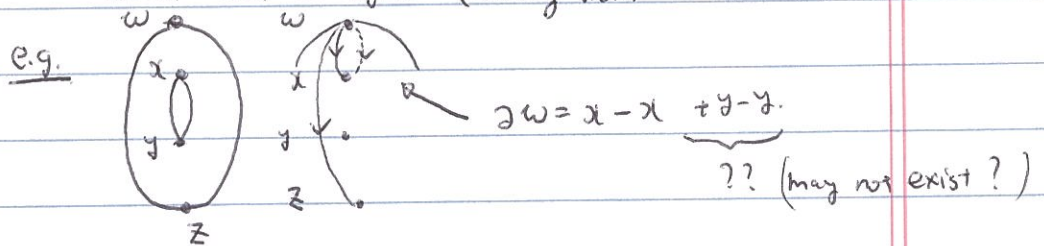 e.g.
w
x
y
z
w
x
y
z
∂w = x - x + y - y.
?? (may not exist?)